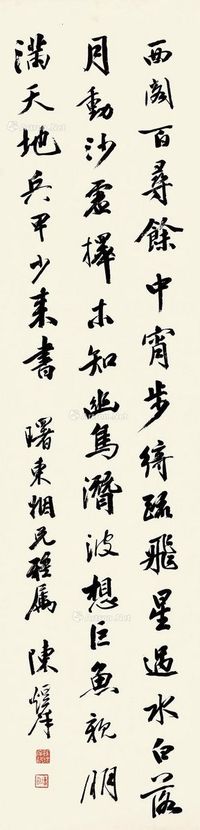 西阁百寻餘中宵步绮疏飛星過水白落
月動沙虚擇木知幽鳥潛波想巨魚親朋
滿天地兵甲少来書 曙東烟兄雅属 陳